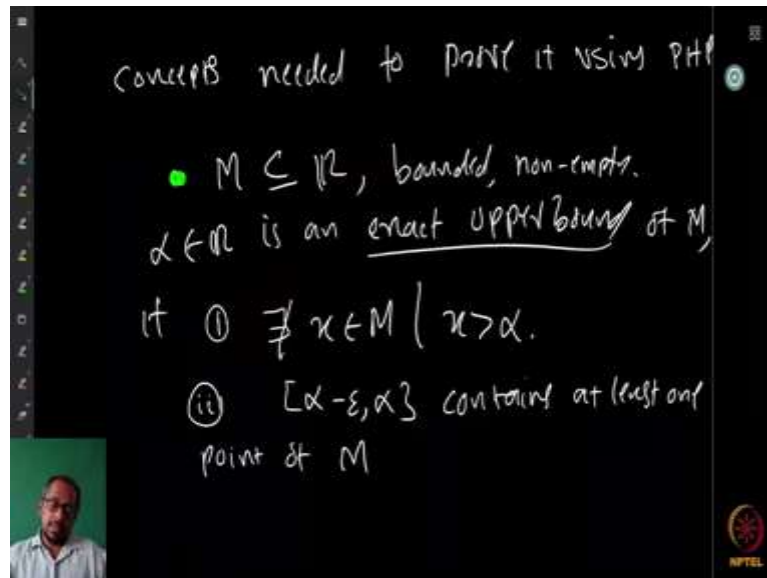 Concepts needed to prove it using PHP
• M ⊆ ℝ, bounded, non-empty.
α ∈ ℝ is an exact upper bound of M,
if ① ∄ x ∈ M | x > α.
ⓘⓘ [α-ε, α] contains at least one
point of M
NPTEL